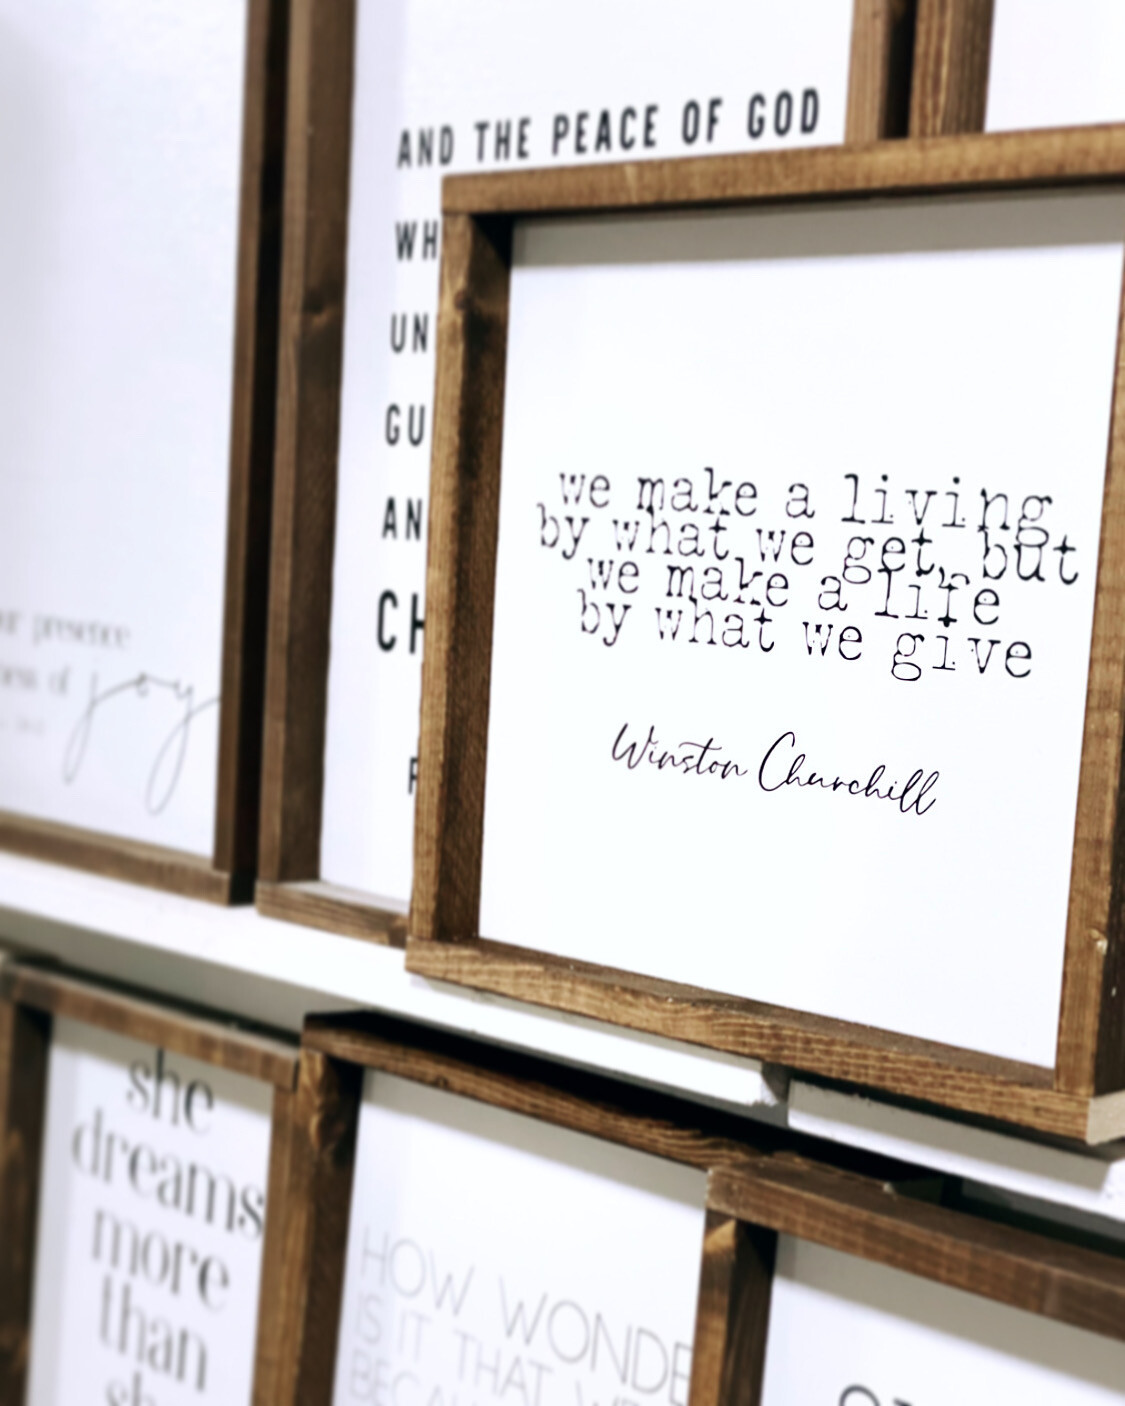 AND THE PEACE OF GOD
WH
UN
GU
AN
CH
we make a living
by what we get, but
we make a life
by what we give
Winston Churchill
presence
of joy
she
dreams
more
than
HOW WONDE
IS IT THAT
BECAU